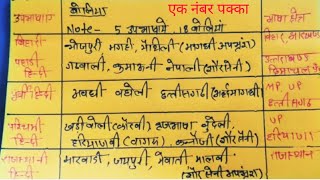 उपभाषाएं बोलियां एक नंबर पक्का भाषा क्षेत्र
Note- 5 उपभाषायें, 18 बोलियां
बिहारी भोजपुरी मगही, मैथिली (मागधी अपभ्रंश) बिहार, झारखण्ड
पहाड़ी हिन्दी गढ़वाली, कुमाऊनी नेपाली (शौरसेनी) उत्तराखण्ड
पूर्वी हिन्दी अवधी बघेली छत्तीसगढ़ी (अर्धमागधी) M.P, UP
छत्तीसगढ़
पश्चिमी हिन्दी खड़ीबोली (कौरवी), ब्रजभाषा बुंदेली, UP
हरियाणवी (बांगरू), कन्नौजी (शौरसेनी) हरियाणा
राजस्थानी हिन्दी मारवाड़ी, जयपुरी, मेवाती मालवी राजस्थान
(शौरसेनी अपभ्रंश)